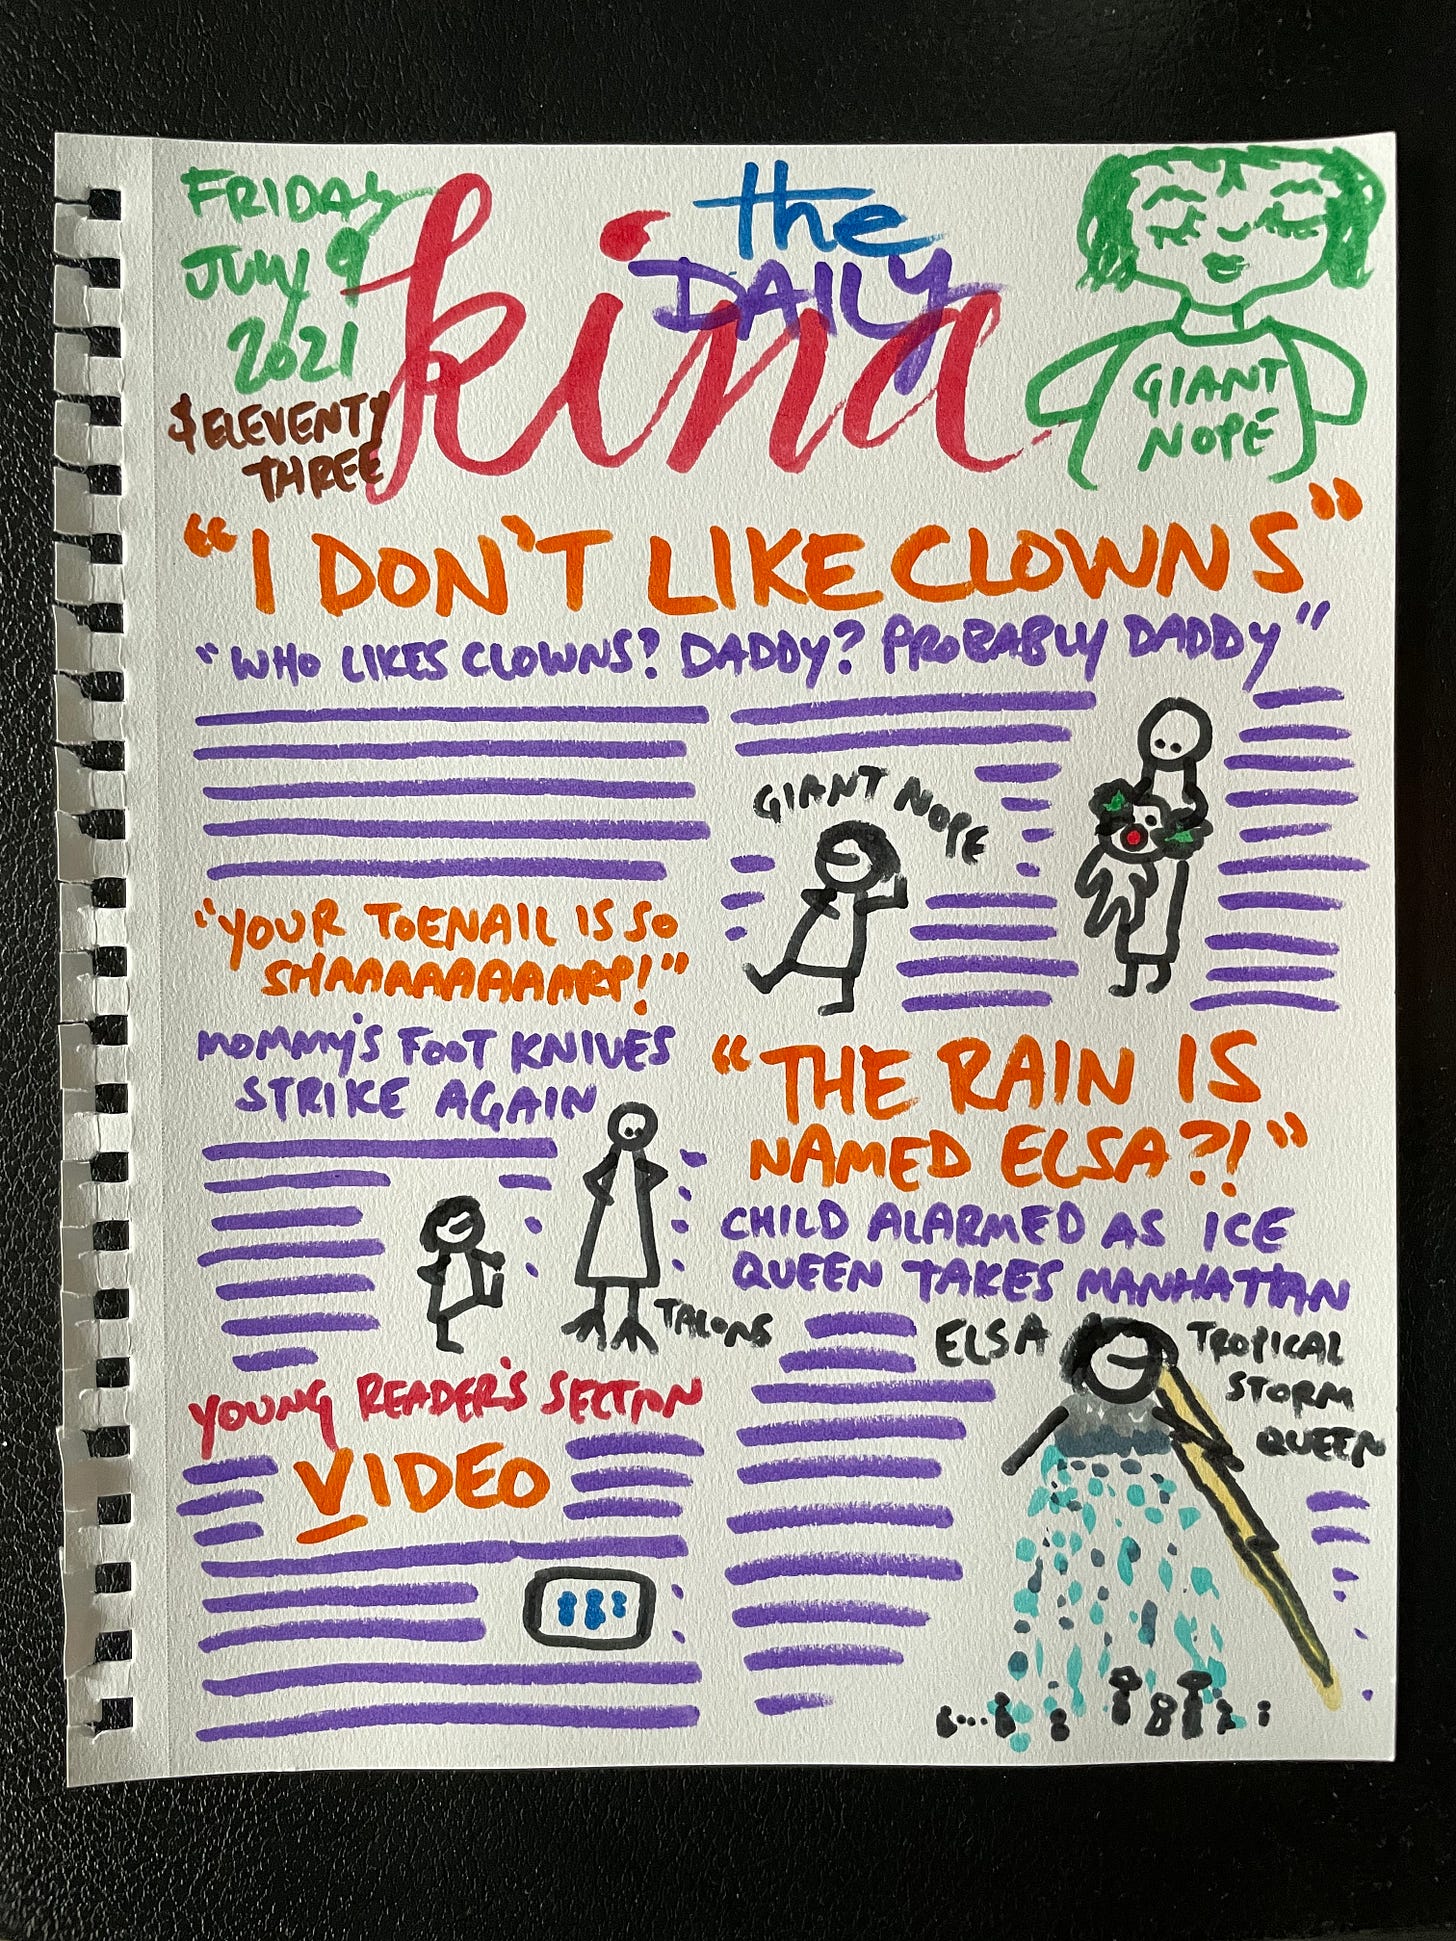 FRIDAY
JULY 9
2021
$ ELEVENTY
THREE
the
DAILY
kina
GIANT
NOPE
"I DON'T LIKE CLOWNS"
"WHO LIKES CLOWNS? DADDY? PROBABLY DADDY"
GIANT NOPE
"YOUR TOENAIL IS SO
SHAAAAAAAAARP!"
MOMMY'S FOOT KNIVES
STRIKE AGAIN
TALONS
"THE RAIN IS
NAMED ELSA?!"
CHILD ALARMED AS ICE
QUEEN TAKES MANHATTAN
ELSA
TROPICAL
STORM
QUEEN
YOUNG READER'S SECTION
VIDEO